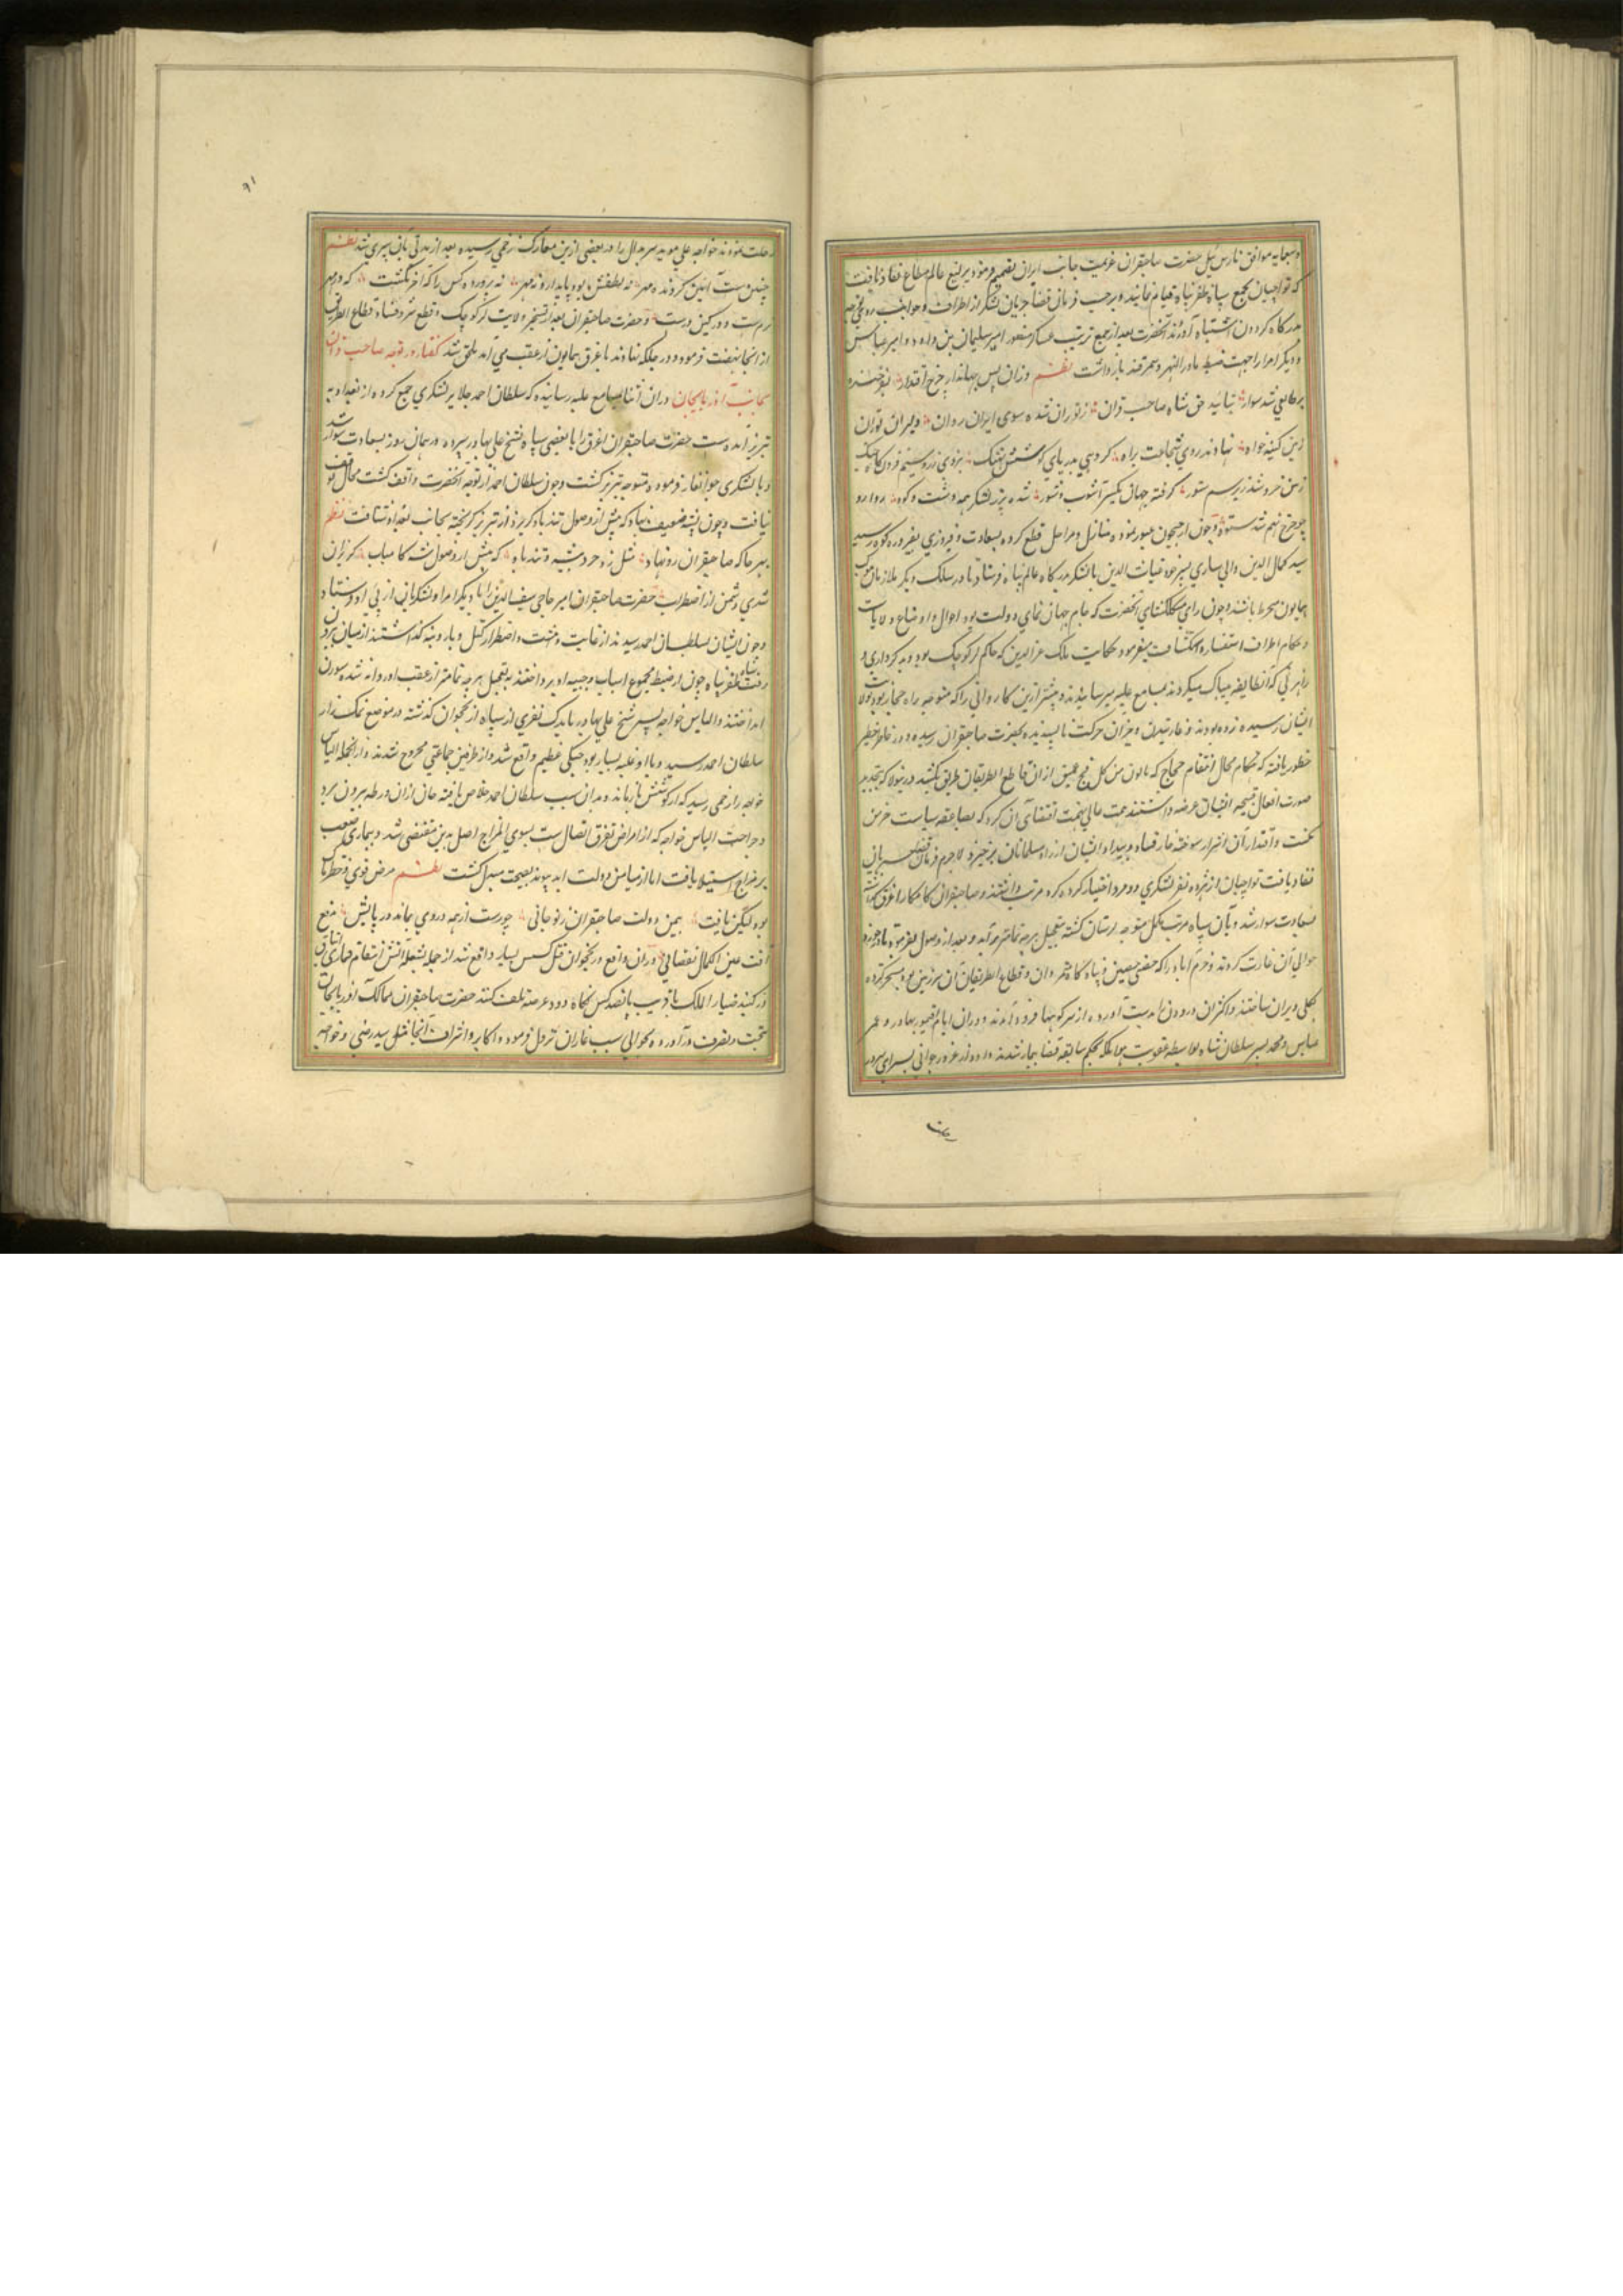 وسبعمایه موافق بارس ئیل حضرت صاحبقران عزیمت جانب ایران تصمیم فرمود یرلیغ عالم مطاع نفاذ یافت
که تواجیان بجمع سپاه ظفرپناه قیام نمایند و برحسب فرمان قضا جریان لشکر از اطراف و جوانب روی
بدرگاه گردون اشتباه آوردند آنحضرت بعد از جمع ترتیب عساکر منصور امیر سلیمان بن داود و امیر عباس
و دیگر امرا را جهت ضبط ماورالنهر و سمرقند بازداشت نظم وزان پس جهاندار چرخ اقتدار
شد سوار بتایید حق شاه صاحب قران ز توران شده سوی ایران روان دلیران توران
زمین کینه خواه نهادند روی شجاعت براه گروهی بدریای کوشش نهنک
گرفته جهان یکسر آشوب و شور شده پر ز لشکر همه دشت و کوه
ستوه و چون از جیحون عبور نموده منازل و مراحل قطع کرده بسعادت و فیروزی بفیروزه کوه رسید
سید کمال الدین والی ساری پسر خود غیاث الدین با لشکر بدرگاه عالم پناه فرستاد تا در سلک دیگر ملازمان موکب
همایون منخرط باشند و چون رای مشکلکشای آنحضرت که جام جهان نمای دولت بود احوال و اوضاع ولایات
و حکام اطراف استفسار و استکشاف میفرمود حکایت ملک عزالدین که حاکم لر کوچک بود و بد کرداری و
راهزنی که آن طایفه بیباک میکردند بمسامع علیه میرسانیدند و پیشتر ازین کاروانی را که متوجه راه حجاز بود
ایشان رسیده زده بودند و غارتیدن و خبر آن حرکت ناپسندیده بحضرت صاحبقران رسیده و در خاطر خطیر
خطور یافته که هنگام مجال انتقام حجاج که یاتون من کل فج عمیق ازان قاطع الطریقان طریق بکشد درینولا که بتجدید
صورت افعال قبیحه ایشان عرضه داشتند همت عالی نهمت اقتضای آن کرد که بصاعقه سیاست خرمن
مکنت و اقتدار آن اشرار سوخته خار فساد و بیداد ایشان از راه مسلمانان برخیزد لاجرم فرمان
نفاذ یافت تواجیان از هر ده نفر لشکری دو مرد اختیار کرده مرتب داشتند و صاحبقران کامکار اغرق گذاشته
بسعادت سوار شد و بآن سپاه مرتب مکمل متوجه لرستان گشته بتعجیل هرچه تمامتر درآمد و بعد از وصول بفرمود
حوالی آن غارت کردند و خرم اباد را که حصنی حصین و پناه گاه متمردان و قطاع الطریقان آن سرزمین بود مسخر کرده
بکلی ویران ساختند و اکثر ان دزدان بدست آورده از سر کوهها فرود آمدند و دران ایام تیمور بهادر و عمر
عباس و محمد پسر سلطان شاه بحکم سابقه قضا بیمار شدند و در غره جوانی بسرای سرور
رحلت
٩١
رحلت نمودند خواجه علی موید سربدال را در بعضی ازین معارک زخمی رسیده بعد از مدتی بآن سپری شد نظم
چنین ست آیین گردنده مهر نه لطفش بود پایدار و نه مهر نه پرورده کس را که آخر نکشت که در مهر
نرم ست و در کین درست و حضرت صاحبقران بعد از تسخیر ولایت لر کوچک و قطع شر و فساد قطاع الطریق
از انجا نهضت فرموده و در جلکه نهاوند باغرق همایون از عقب می آمد ملحق شد گفتار در توجه صاحب قران
بجانب آذربایجان دران اثنا بمسامع علیه رسانیدند که سلطان احمد جلایر لشکری جمع کرده از بغداد به
تبریز آمده ست حضرت صاحبقران اغرق را با بعضی سپاه شیخ علی بهادر سپرده در همان روز بسعادت سوار شد
و با لشکری جوانغار فرموده متوجه تبریز گشت و چون سلطان احمد از توجه آنحضرت واقف گشت مجال توقف
نیافت و چون پشه ضعیف نهاد که پیش از وصول تندباد گریزد از تبریز گریخته بجانب بغداد شتافت نظم
بهر جا که صاحبقران رو نهاد مثل زد خرد پشه و تند باد که پیش از وصول شه کامیاب گریزان
شدی دشمن از اضطراب حضرت صاحبقران امیر حاجی سیف الدین را با دیگر امرا و لشکریان از پی او فرستاد
و چون ایشان بسلطان احمد رسیدند از غایت دهشت و اضطرار و بنه گذاشتند از میان بیرون
رفت سپاه ظفرپناه چون از ضبط مجموع اسباب و جیبه او پرداختند بتعجیل هرچه تمامتر از عقب او روانه شده سورن
انداختند و الیاس خواجه پسر شیخ علی بهادر با اندک نفری از سپاه از نخجوان گذشته در موضع نمک زار
سلطان احمد رسید و با او غلبه بسیار بود جنگی عظیم واقع شد و از طرفین جماعتی مجروح شدند و از انجمله الیاس
خواجه را زخمی رسید که از کوشش باز ماند و بدان سبب سلطان احمد خلاص یافته جان ازان ورطه بیرون برد
و جراحت الیاس خواجه که از امراض تفرق اتصال ست بسوی المزاج اصل بدین مفضی شد و بیماری صعب
بر مزاج استیلا یافت اما از میامن دولت ابد پیوند بصحت مبدل گشت نظم مرض قوی و خطرناک
بود لیکن یافت بیمن دولت صاحبقران ز نو جانی چو رست از همه دردی بماند در پایش بدفع
آفت عین الکمال نقصانی و دران واقع در نخجوان قتل کسی بسیار واقع شد از جمله بشعله آتش انتقام
در گنبد ضیاء الملک قریب پانصد کس بکاه دود عرصه تلف گشتند حضرت صاحبقران ممالک آذربایجان
بتحت تصرف درآورده و بحوالی شنب غازان نزول فرموده و اکابر و اشراف آنجا مثل سید رضی و خواجه